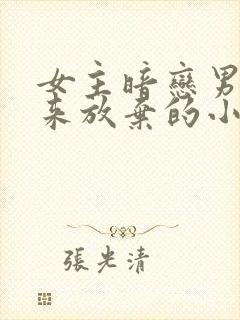 女主暗戀男
来放棄的小
張光清